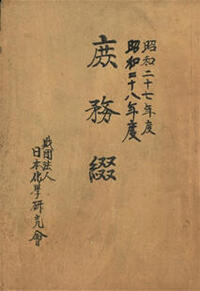 昭和二十七年度
昭和二十八年度
庶務綴
財団法人
日本化学研究會